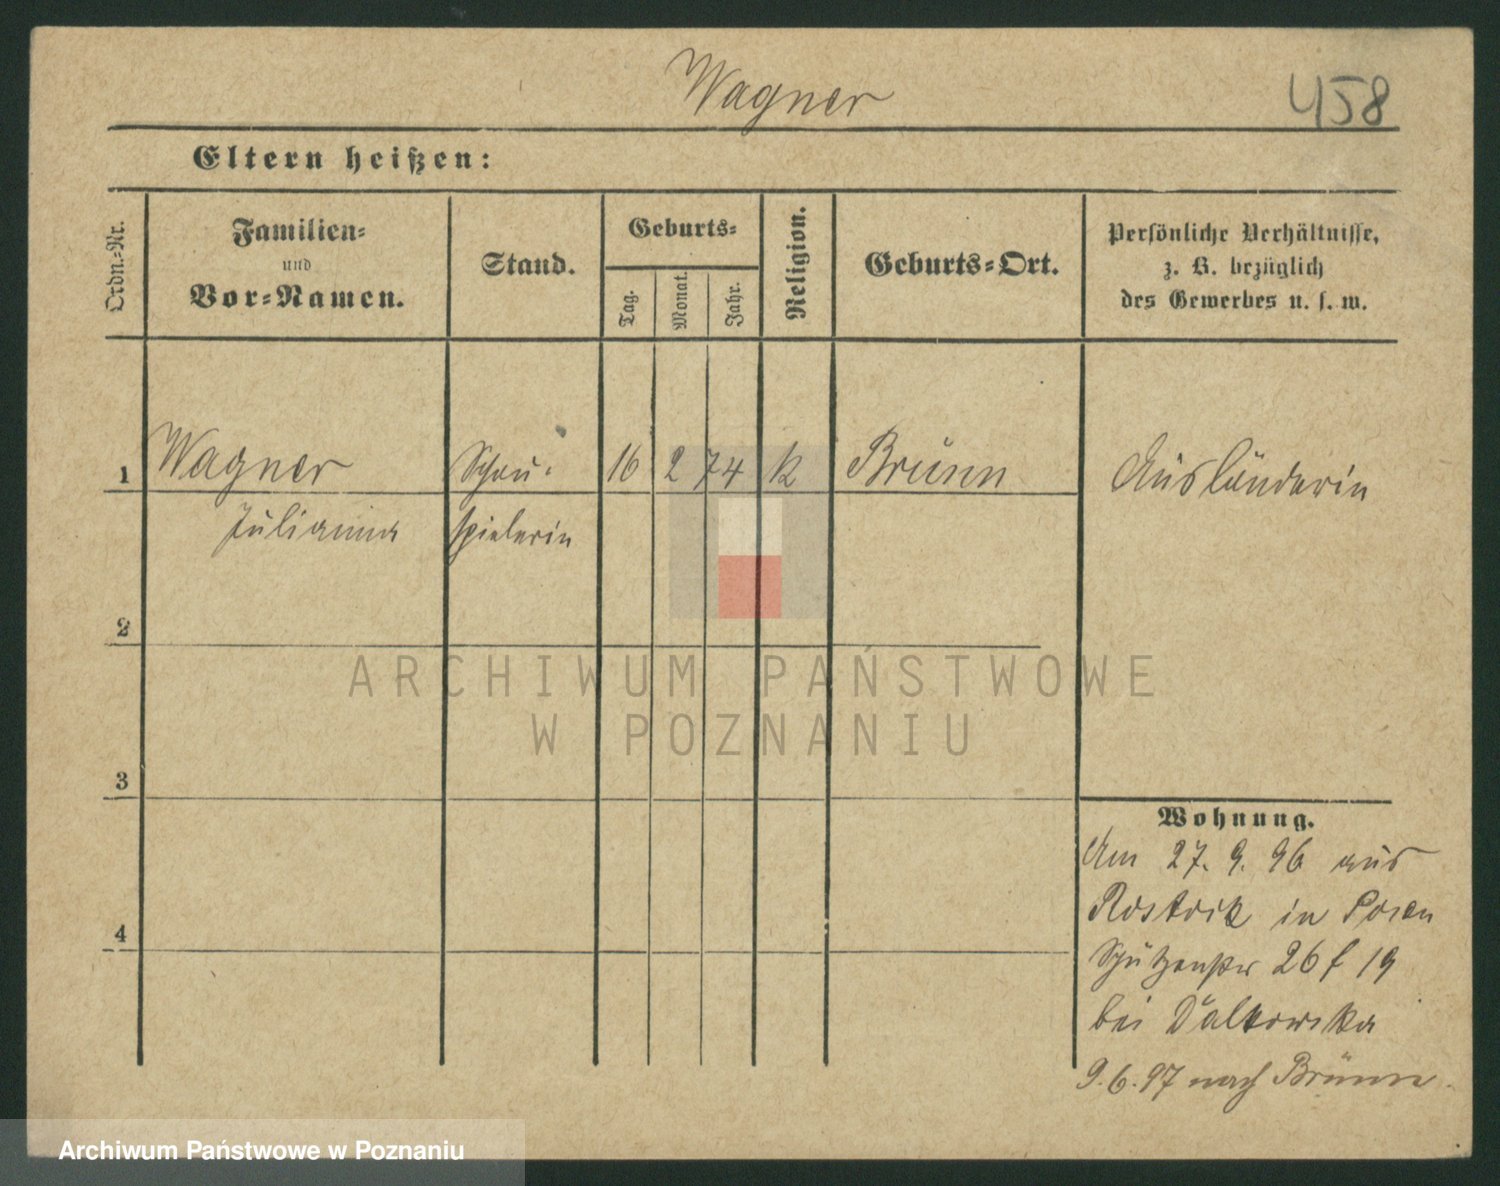 Wagner
458
Eltern heißen:
Ordn.-Nr.
Familien-
und
Vor-Namen.
Stand.
Geburts-
Tag.
Monat.
Jahr.
Religion.
Geburts-Ort.
Persönliche Verhältnisse,
z. B. bezüglich
des Gewerbes u. s. w.
1 Wagner Schau- 16 2 74 k Brünn Ausländerin
Julianna spielerin
2
3
4
Wohnung.
Am 27. 9. 96 aus
Rostock in Posen
Schützenstr 26 f 19
bei Dalkowska
9.6.97 nach Brünn.
ARCHIWUM PAŃSTWOWE
W POZNANIU
Archiwum Państwowe w Poznaniu